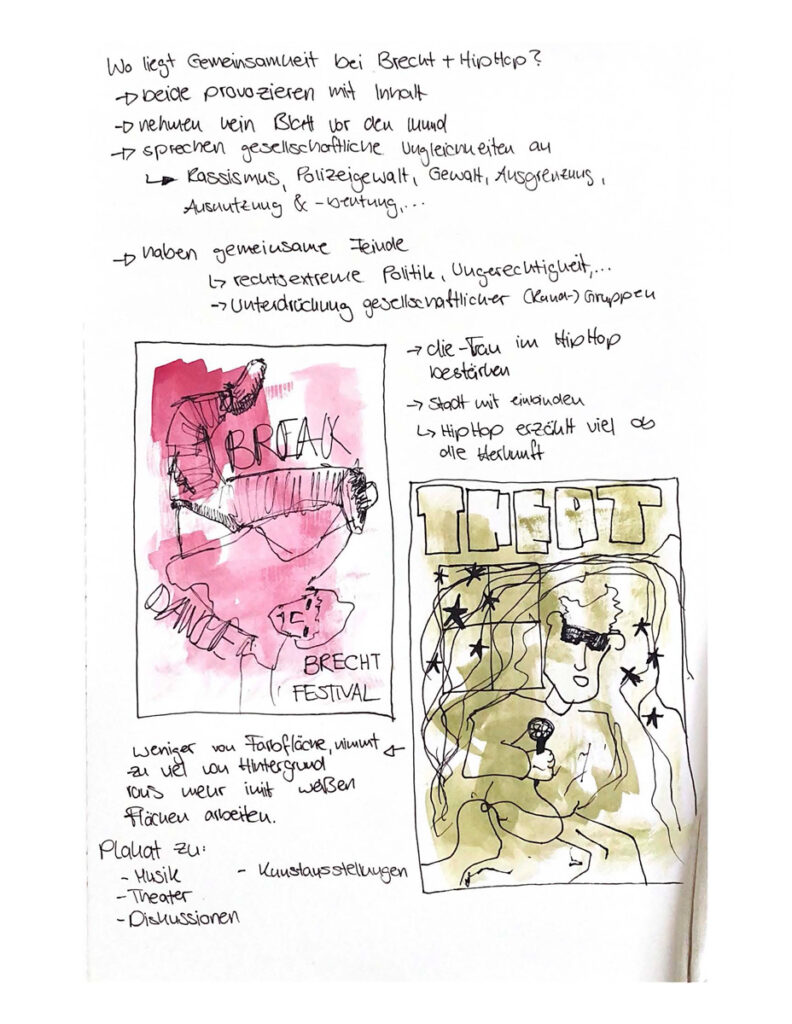 Wo liegt Gemeinsamkeit bei Brecht + HipHop?
→ beide provozieren mit Inhalt
→ nehmen kein Blatt vor den Mund
→ sprechen gesellschaftliche Ungleichheiten an
↳ Rassismus, Polizeigewalt, Gewalt, Ausgrenzung,
Ausnutzung & -beutung,...
→ haben gemeinsame Feinde
↳ rechtsextreme Politik, Ungerechtigkeit,...
→ Unterdrückung gesellschaftlicher (Rand-) Gruppen
→ die Frau im HipHop
bestärken
→ Stadt mit einbinden
↳ HipHop erzählt viel ob
die Herkunft
BREAK
DANCE
BRECHT
FESTIVAL
THEAT
weniger von Farbfläche, nimmt
zu viel von Hintergrund
raus mehr mit weißen
Flächen arbeiten.
Plakat zu:
- Musik
- Kunstausstellungen
- Theater
- Diskussionen